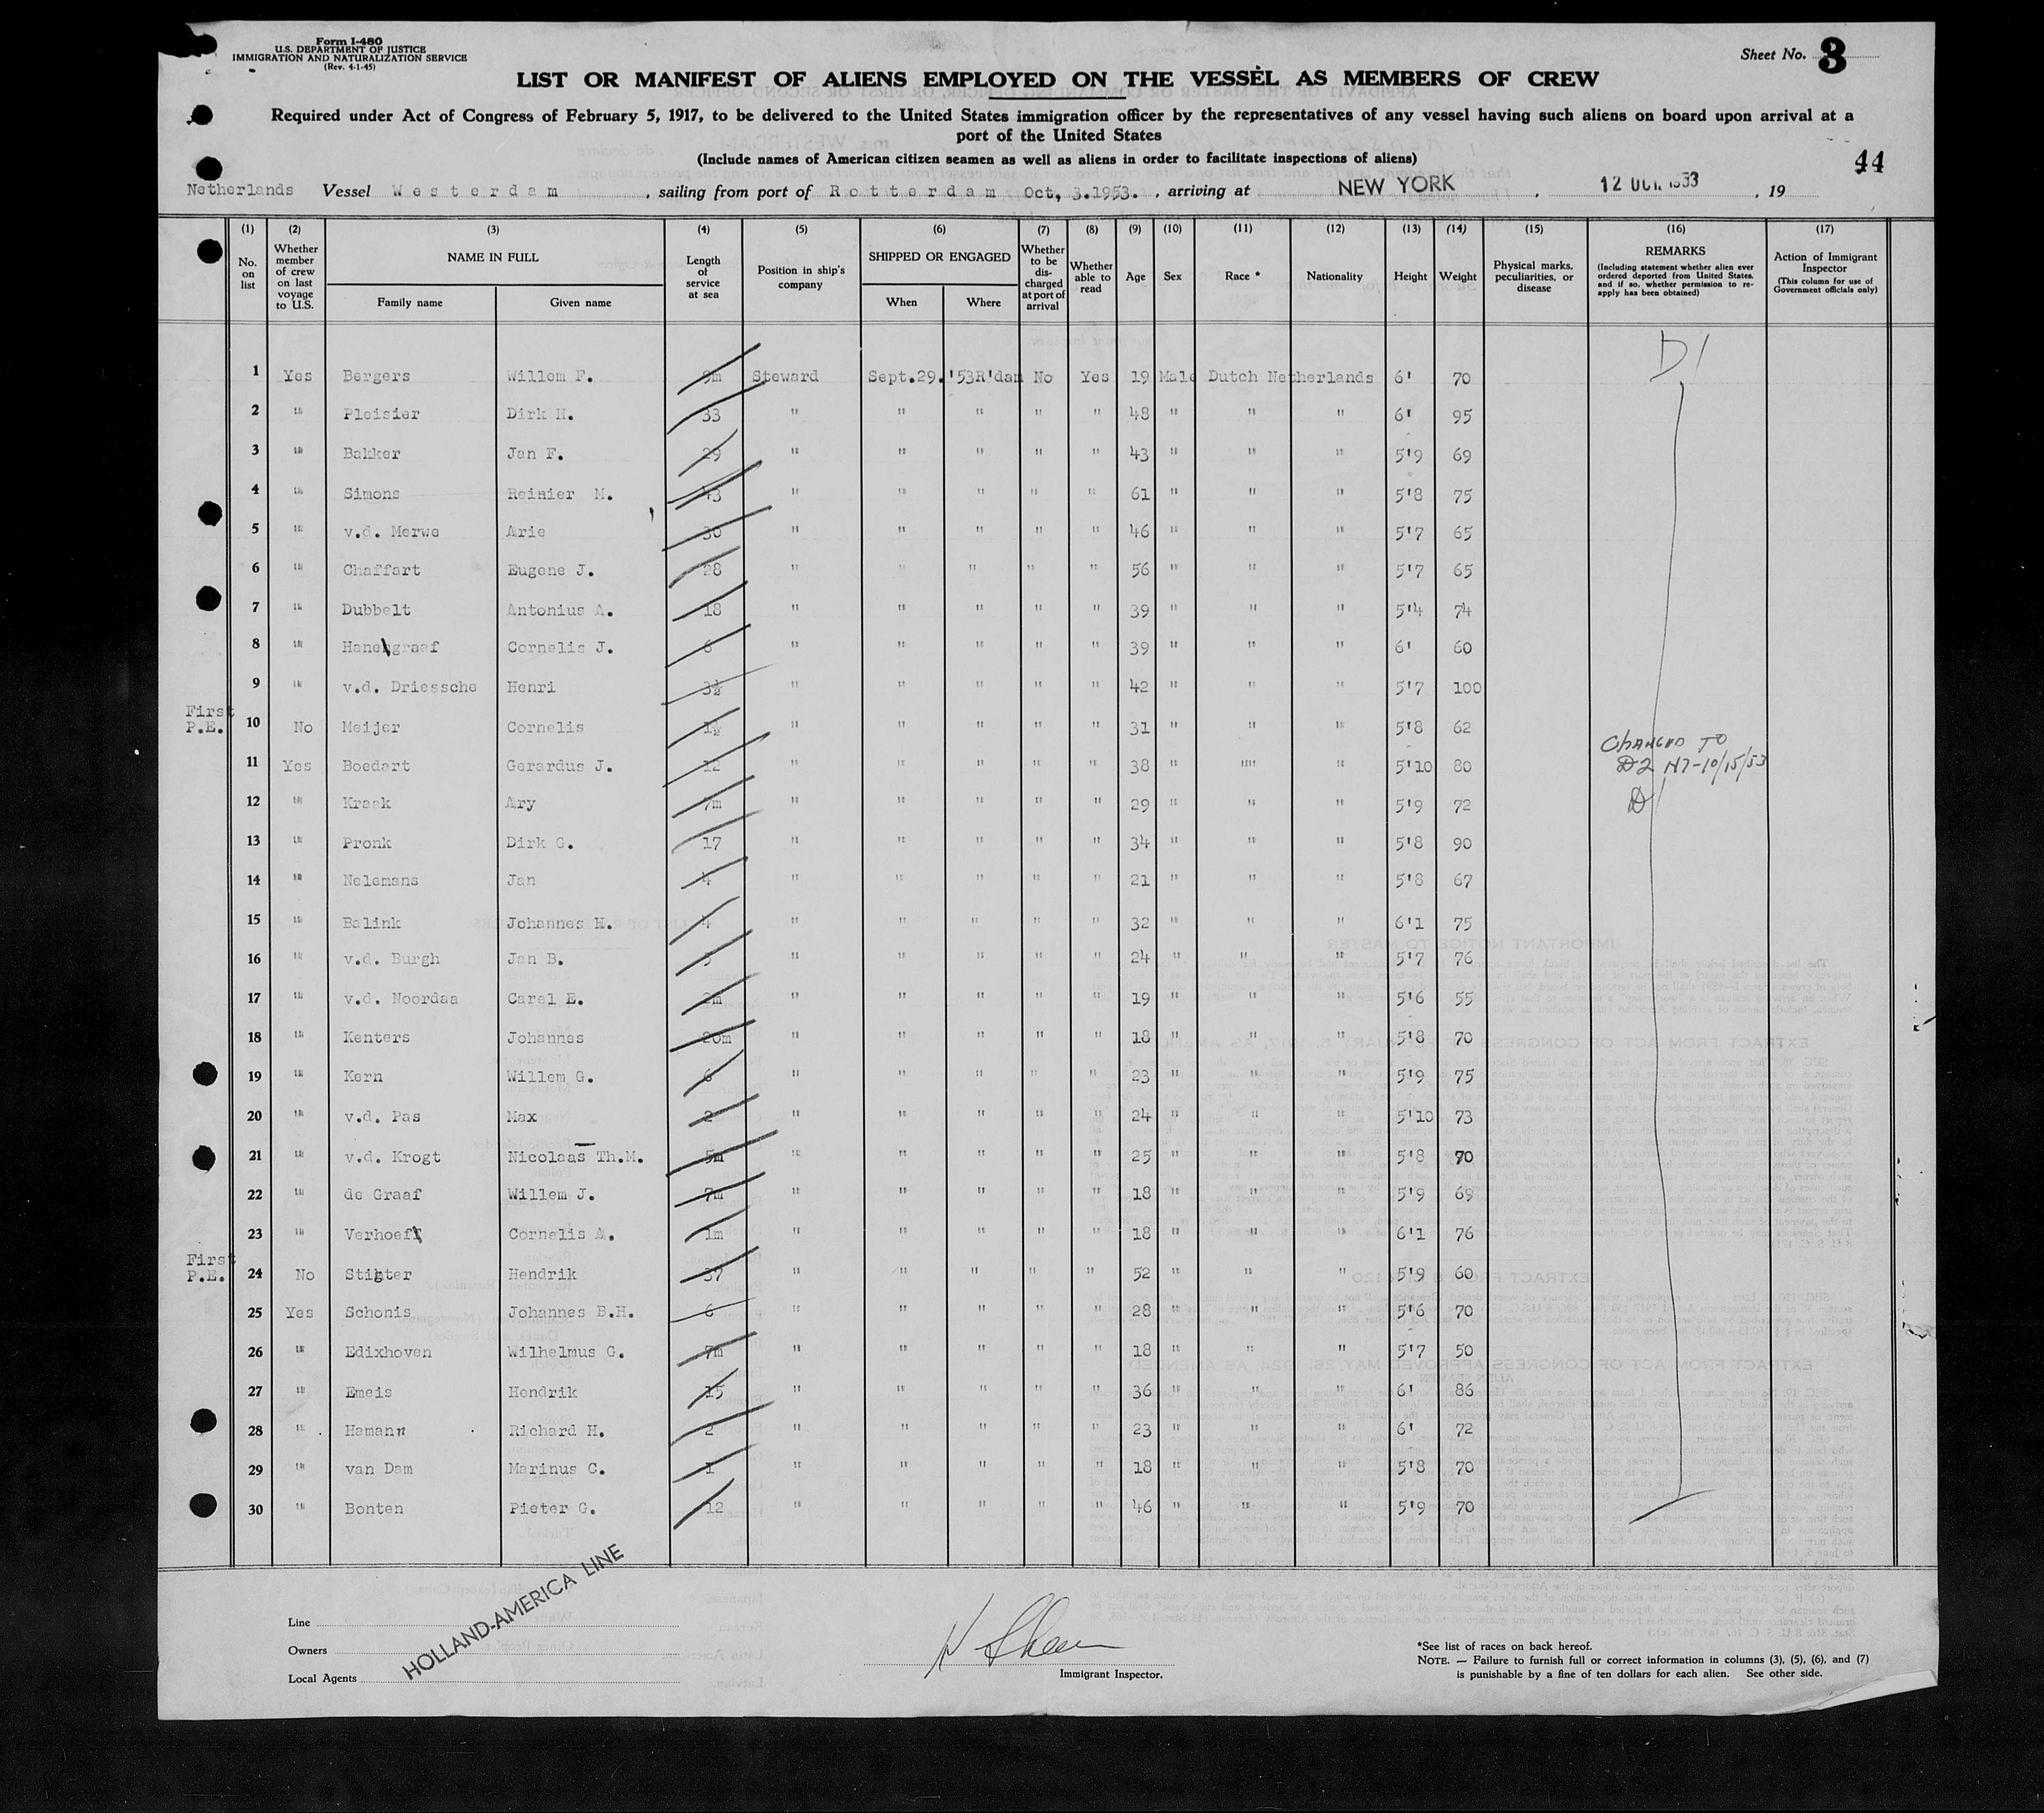 Form I-480
U.S. DEPARTMENT OF JUSTICE
IMMIGRATION AND NATURALIZATION SERVICE
(Rev. 4-1-45)
Sheet No. 3
LIST OR MANIFEST OF ALIENS EMPLOYED ON THE VESSEL AS MEMBERS OF CREW
Required under Act of Congress of February 5, 1917, to be delivered to the United States immigration officer by the representatives of any vessel having such aliens on board upon arrival at a
port of the United States
(Include names of American citizen seamen as well as aliens in order to facilitate inspections of aliens)
44
Netherlands Vessel Westerdam , sailing from port of Rotterdam Oct, 3.1953. , arriving at NEW YORK , 12 OCT. 1953 , 19
(1) (2) (3) (4) (5) (6) (7) (8) (9) (10) (11) (12) (13) (14) (15) (16) (17)
No. on list
Whether member of crew on last voyage to U.S.
NAME IN FULL
Family name Given name
Length of service at sea
Position in ship's company
SHIPPED OR ENGAGED
When Where
Whether to be discharged at port of arrival
Whether able to read
Age Sex Race * Nationality Height Weight
Physical marks, peculiarities, or disease
REMARKS
(Including statement whether alien ever ordered deported from United States, and if so, whether permission to reapply has been obtained)
Action of Immigrant Inspector
(This column for use of Government officials only)
D1
1 Yes Bergers Willem F. 9m Steward Sept.29.'53 R'dam No Yes 19 Male Dutch Netherlands 6' 70
2 " Pleisier Dirk H. 33 " " " " " 48 " " " 6' 95
3 " Bakker Jan F. 29 " " " " " 43 " " " 5'9 69
4 " Simons Reinier M. 43 " " " " " 61 " " " 5'8 75
5 " v.d. Merwe Arie 30 " " " " " 46 " " " 5'7 65
6 " Chaffart Eugene J. 28 " " " " " 56 " " " 5'7 65
7 " Dubbelt Antonius A. 18 " " " " " 39 " " " 5'4 74
8 " Hanegraaf Cornelis J. 6 " " " " " 39 " " " 6' 60
9 " v.d. Driessche Henri 3½ " " " " " 42 " " " 5'7 100
First P.E. 10 No Meijer Cornelis 1½ " " " " " 31 " " " 5'8 62
CHANGED TO
11 Yes Boedart Gerardus J. 12 " " " " " 38 " "" " 5'10 80 D2 N7-10/15/53
12 " Kraak Ary 7m " " " " " 29 " " " 5'9 72 D1
13 " Pronk Dirk G. 17 " " " " " 34 " " " 5'8 90
14 " Nelemans Jan 4 " " " " " 21 " " " 5'8 67
15 " Balink Johannes H. 4 " " " " " 32 " " " 6'1 75
16 " v.d. Burgh Jan B. 5 " " " " " 24 " " " 5'7 76
17 " v.d. Noordaa Carel E. 2m " " " " " 19 " " " 5'6 55
18 " Kenters Johannes 20m " " " " " 18 " " " 5'8 70
19 " Kern Willem G. 6 " " " " " 23 " " " 5'9 75
20 " v.d. Pas Max 2 " " " " " 24 " " " 5'10 73
21 " v.d. Krogt Nicolaas Th.M. 5m " " " " " 25 " " " 5'8 70
22 " de Graaf Willem J. 7m " " " " " 18 " " " 5'9 69
23 " Verhoeff Cornelis A. 1m " " " " " 18 " " " 6'1 76
First P.E. 24 No Stigter Hendrik 37 " " " " " 52 " " " 5'9 60
25 Yes Schonis Johannes B.H. 6 " " " " " 28 " " " 5'6 70
26 " Edixhoven Wilhelmus G. 7m " " " " " 18 " " " 5'7 50
27 " Emeis Hendrik 15 " " " " " 36 " " " 6' 86
28 " Hamann Richard H. 2 " " " " " 23 " " " 6' 72
29 " van Dam Marinus C. 1 " " " " " 18 " " " 5'8 70
30 " Bonten Pieter G. 12 " " " " " 46 " " " 5'9 70
Line
Owners
Local Agents
HOLLAND-AMERICA LINE
Immigrant Inspector.
*See list of races on back hereof.
NOTE. — Failure to furnish full or correct information in columns (3), (5), (6), and (7)
is punishable by a fine of ten dollars for each alien. See other side.